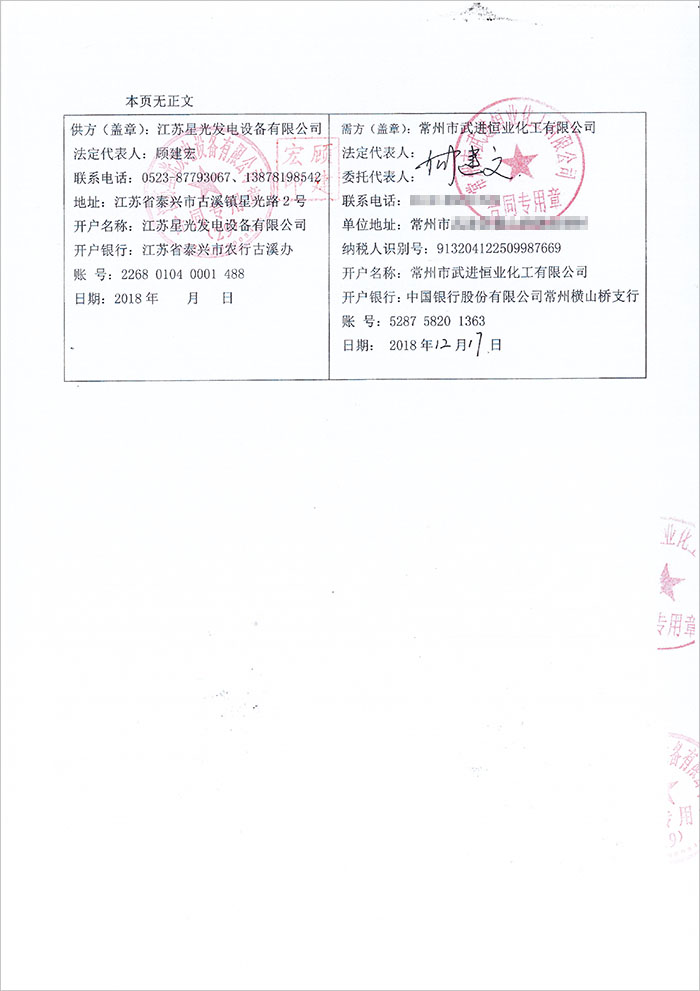 本页无正文
供方（盖章）：江苏星光发电设备有限公司
法定代表人：顾建宏
联系电话：0523-87793067、13878198542
地址：江苏省泰兴市古溪镇星光路2号
开户名称：江苏星光发电设备有限公司
开户银行：江苏省泰兴市农行古溪办
账 号：2268 0104 0001 488
日期：2018 年 月 日
宏顾
印建
需方（盖章）：常州市武进恒业化工有限公司
法定代表人：
委托代表人：
联系电话：
单位地址：常州市
纳税人识别号：913204122509987669
开户名称：常州市武进恒业化工有限公司
开户银行：中国银行股份有限公司常州横山桥支行
账 号：5287 5820 1363
日期： 2018 年12月17日
合同专用章
业化工
专用章
备有限
专用